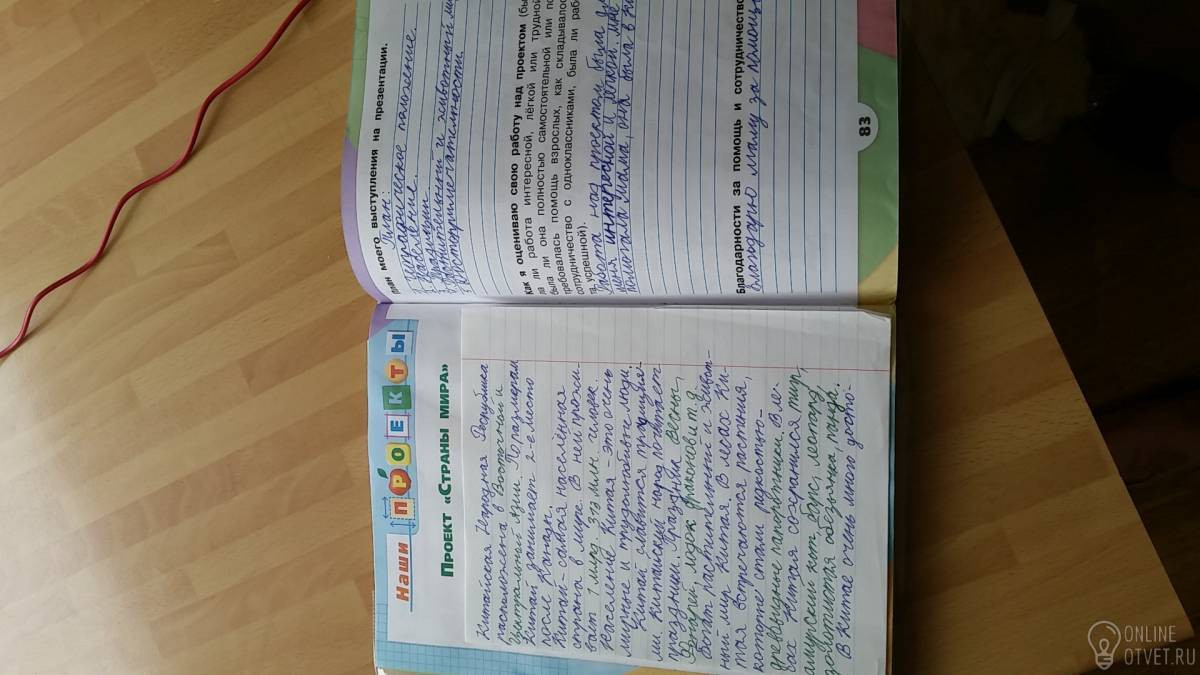 Наши
ПРОЕКТЫ
ПРОЕКТ «СТРАНЫ МИРА»
Китайская Народная Республика
расположена в Восточной и
Центральной Азии. По размерам
Китай занимает 2-е место
после Канады.
Китай-самая населённая
страна в мире. В ней прожи-
вает 1 млрд. 373 млн. человек.
Население Китая - это очень
мирные и трудолюбивые люди.
Китай славится традиция-
ми. Китайский народ почитает
праздники. Праздника Весны,
Фонарей, лодок драконов и т.д.
Богат растительный и живот-
ный мир Китая. В лесах Ки-
тая встречаются растения,
которые стали редкостью-
древовидные папоротники. В ле-
сах Китая сохранился тигр,
амурский кот, барс, леопард,
золотистая обезьяна, панда.
В Китае очень много досто-
План моего выступления на презентации.
План:
1. Географическое положение.
2. Население.
3. Традиции.
4. Растительный и животный ми
5. Достопримечательности.
Как я оцениваю свою работу над проектом (бы
ла ли работа интересной, лёгкой или трудной
была ли она полностью самостоятельной или по
требовалась помощь взрослых, как складывалос
сотрудничество с одноклассниками, была ли рабо
та успешной).
Работа над проектом была для
меня интересной и лёгкой. Мне
помогала мама, она была в
Благодарности за помощь и сотрудничество
Благодарю маму за помощь
83
ONLINE
OTVET.RU